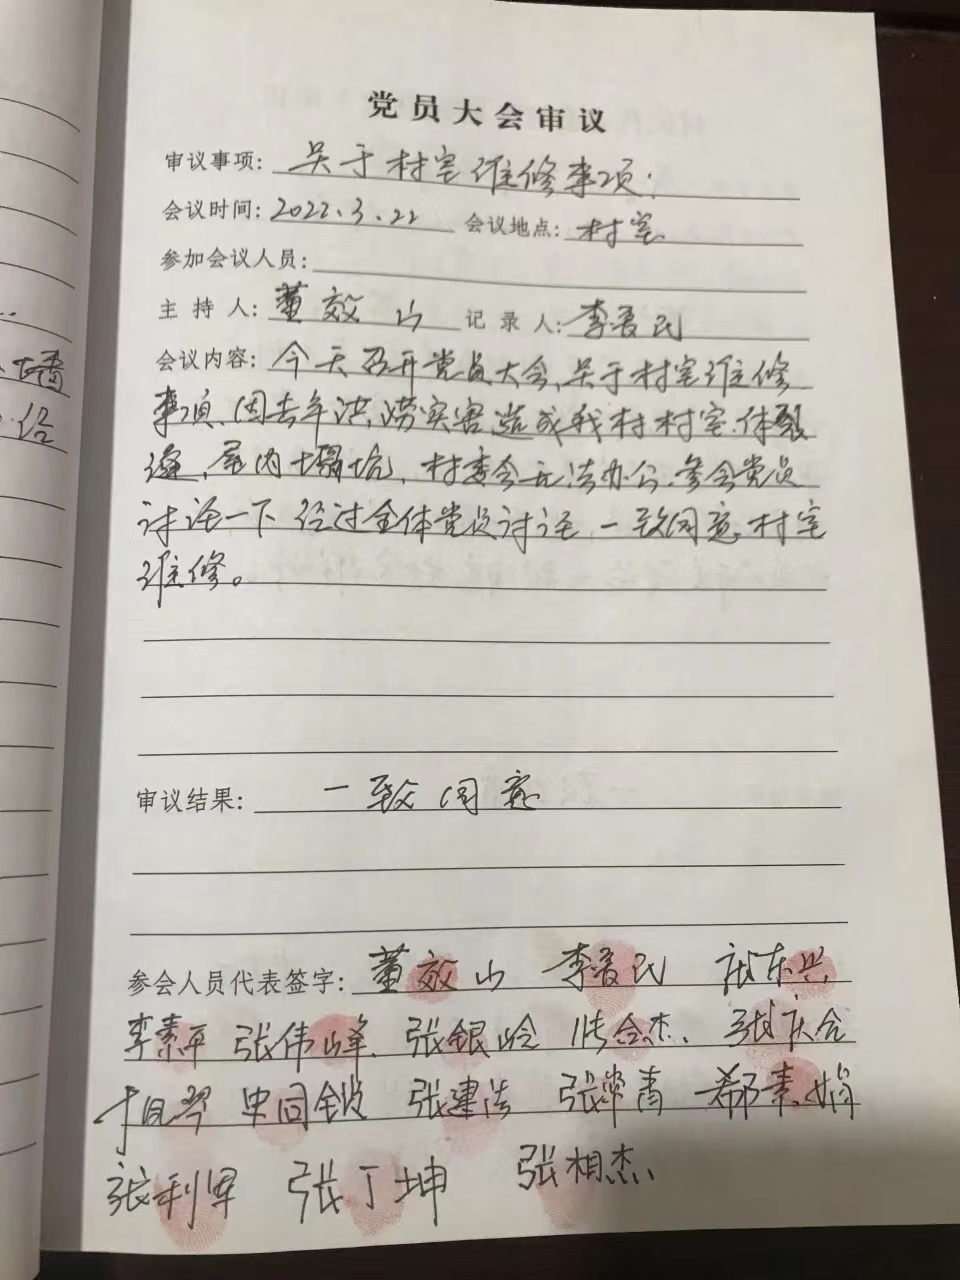 党员大会审议
审议事项: 关于村室维修事项.
会议时间: 2022.3.22 会议地点: 村室
参加会议人员:
主持人: 董效山 记录人: 李爱民
会议内容: 今天召开党员大会、关于村室维修
事项、因去年洪涝灾害造成我村村室.体裂
缝,屋内塌坑、村委会无法办公.参会党员
讨论一下 经过全体党员讨论,一致同意村室
维修。
审议结果: 一致同意
参会人员代表签字: 董效山 李爱民 张东兴
李素平 张伟峰、张银岭 张合杰、张庆合
申同锁 张建浩 张常青 郗素娟
张利军 张丁坤 张相杰、